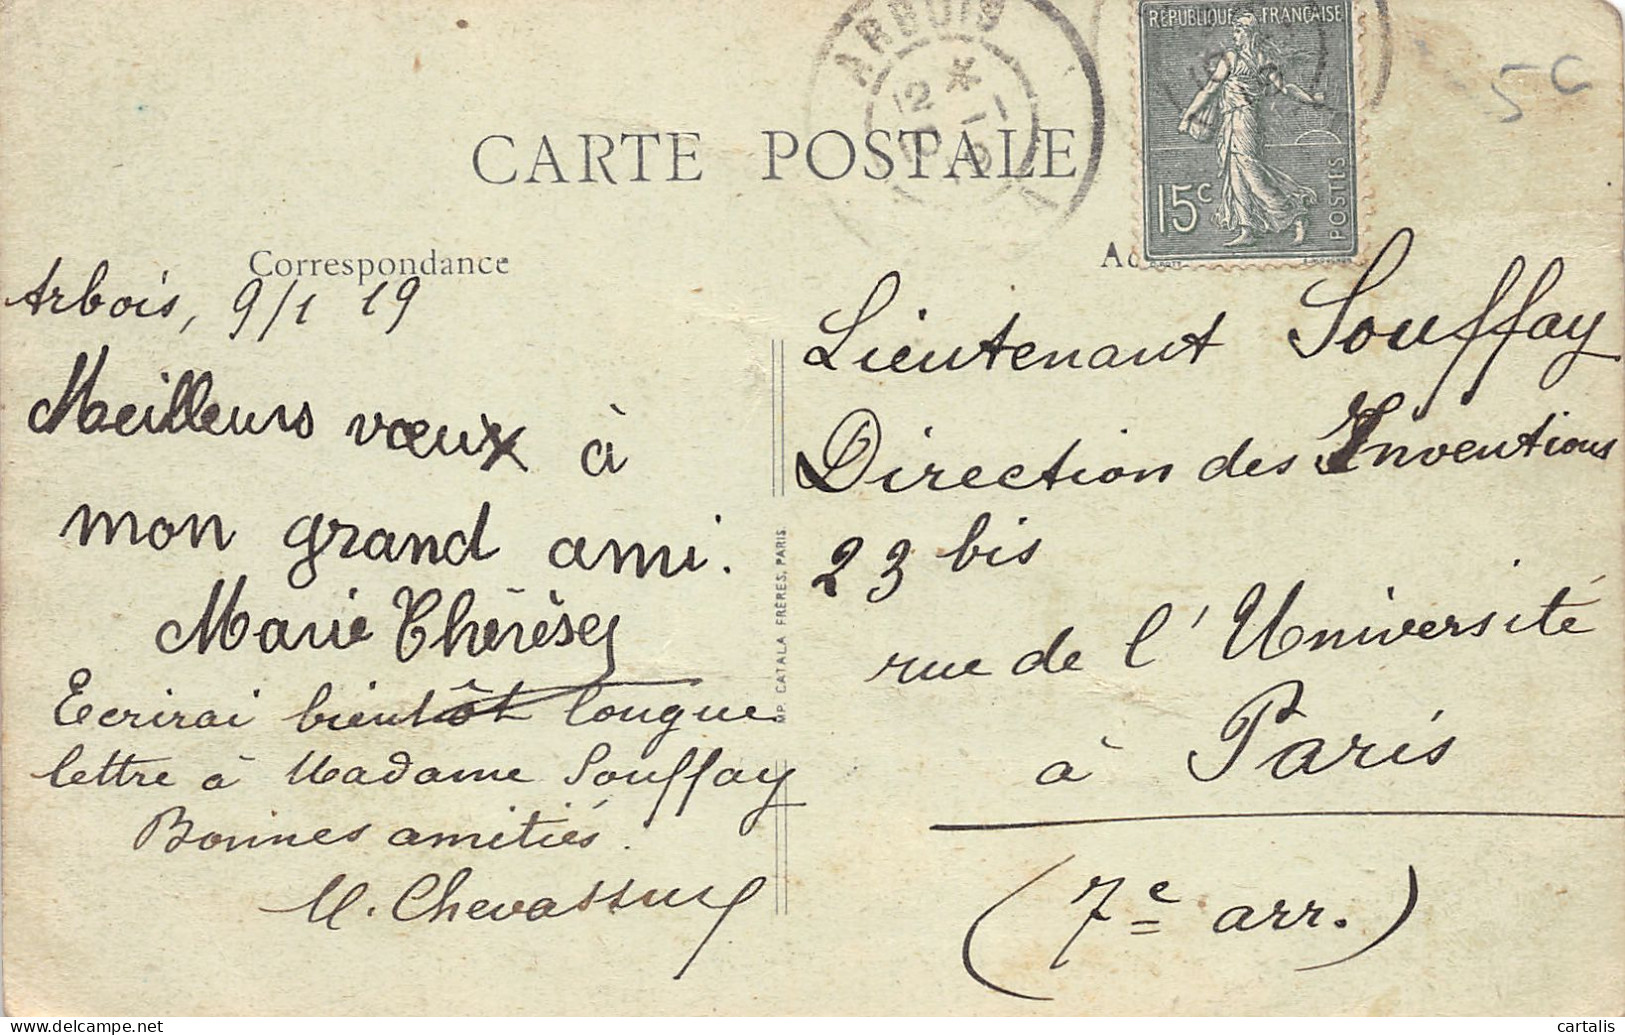 ARBOIS
RÉPUBLIQUE FRANÇAISE
15c
POSTES
5c
CARTE POSTALE
Correspondance
Arbois, 9/1 19
Meilleurs vœux à
mon grand ami.
Marie Thérèse
Ecrirai bientôt longue
lettre à Madame Souffay
Bonnes amitiés.
M. Chevassus
IMP. CATALA FRÈRES, PARIS
Lieutenant Souffay
Direction des Inventions
23 bis
rue de l'Université
à Paris
(7e arr.)
delcampe.net
cartalis